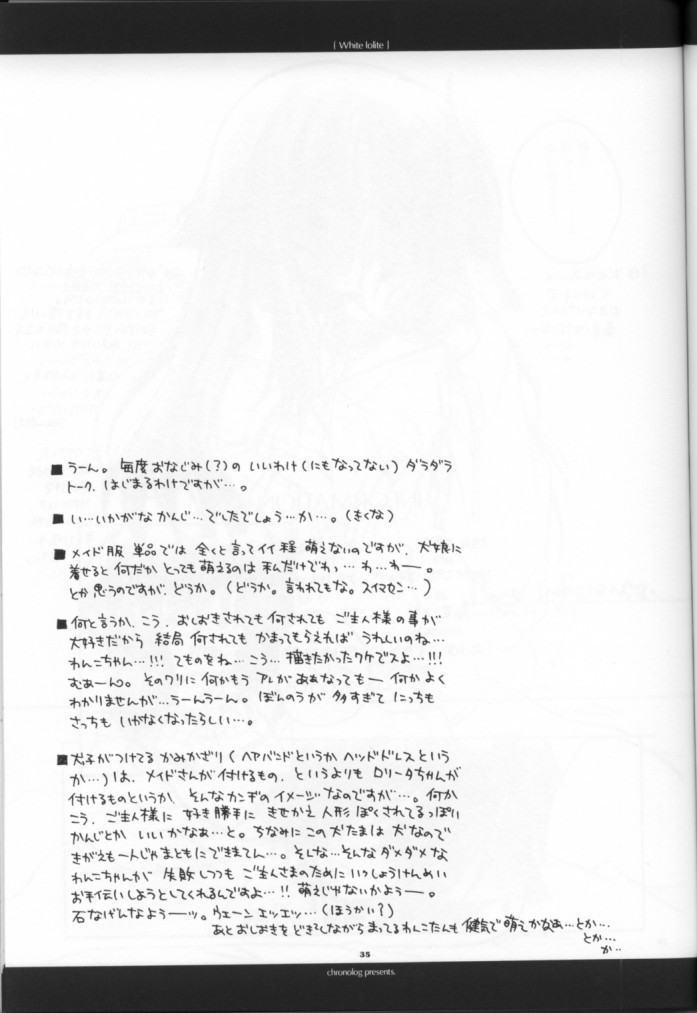 [ White lolite ]
■ うーん。毎度おなじみ(?)の いいわけ(にもなってない) ダラダラ
トーク、はじまるわけですが…。
■ い…いかがな かんじ…でしたでしょう…か…。(きくな)
■ メイド服 単品では 全くと言ってイイ程 萌えないのですが、犬娘に
着せると 何だか とっても萌えるのは 私だけでわっ…わ…わー。
とか思うのですが、どうか。(どうか。言われてもな。スイマセン…)
■ 何と言うか、こう、おしおきされても何されても ご主人様の事が
大好きだから 結局 何されても かまってもらえれば うれしいのね…
わんこちゃん…!!! てものをね…こう…描きたかったワケでスよ…!!!
むぁーん。そのワリに何かもう アレがああなってもー 何かよく
わかりませんが…うーんうーん。ぼんのうが 多すぎて にっちも
さっちも いかなくなったらしい…。
■ 犬子がつけてる かみかざり(ヘアバンドというか ヘッドドレスという
か…)は、メイドさんが付けるもの、というよりも ロリータちゃんが
付けるものというか、そんなカンヂのイメージなのですが…。何か
こう、ご主人様に 好き勝手に きせかえ人形 ぽくされてるっぽい
かんじとか いいかなぁ…と。ちなみにこの犬たまは 犬なので
きがえも一人じゃまともにできません…。そんな…そんなダメダメな
わんこちゃんが 失敗しつつも ご主人さまのために いっしょうけんめい
お手伝いしようとしてくれるんですよ…!! 萌えじゃないかようー。
石なげんなようーッ。ウェーン エッエッ…(ほうかい?)
あと おしおきを どきどきしながら まってるわんこたんも 健気で萌えかなぁ…とか…
とか…
か…
35
chronolog presents.